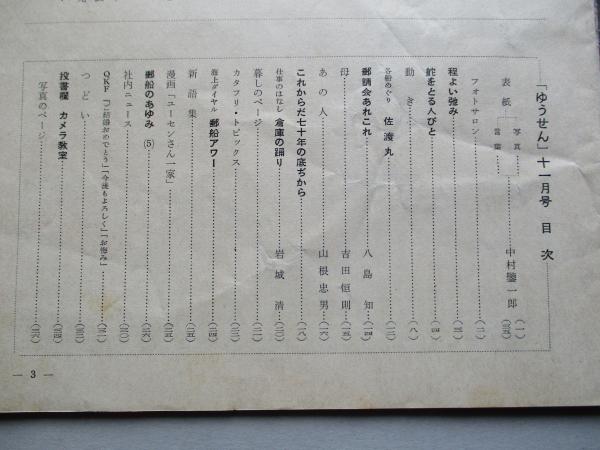 「ゆうせん」十一月号 目次
表紙 写真 (一)
言葉 中村鑒一郎
フォトサロン (二)
程よい弛み
鮀をとる人びと (四)
動き
各船めぐり 佐渡丸
郵請会あれこれ 八島知 (一四)
母 吉田恒則
あの人 山根忠男 (一六)
これからだ七十年の底ぢから (一八)
仕事のはなし 倉庫の踊り 岩城清
暮しのページ
カタフリ・トピックス
海上ダイヤル 郵船アワー
新語集
漫画「ユーセンさん一家」
郵船のあゆみ (5)
社内ニュース
QKF「ご結婚おめでとう」「今後もよろしく」「お悔み」
つどい
投書欄 カメラ教室
写真のページ
— 3 —